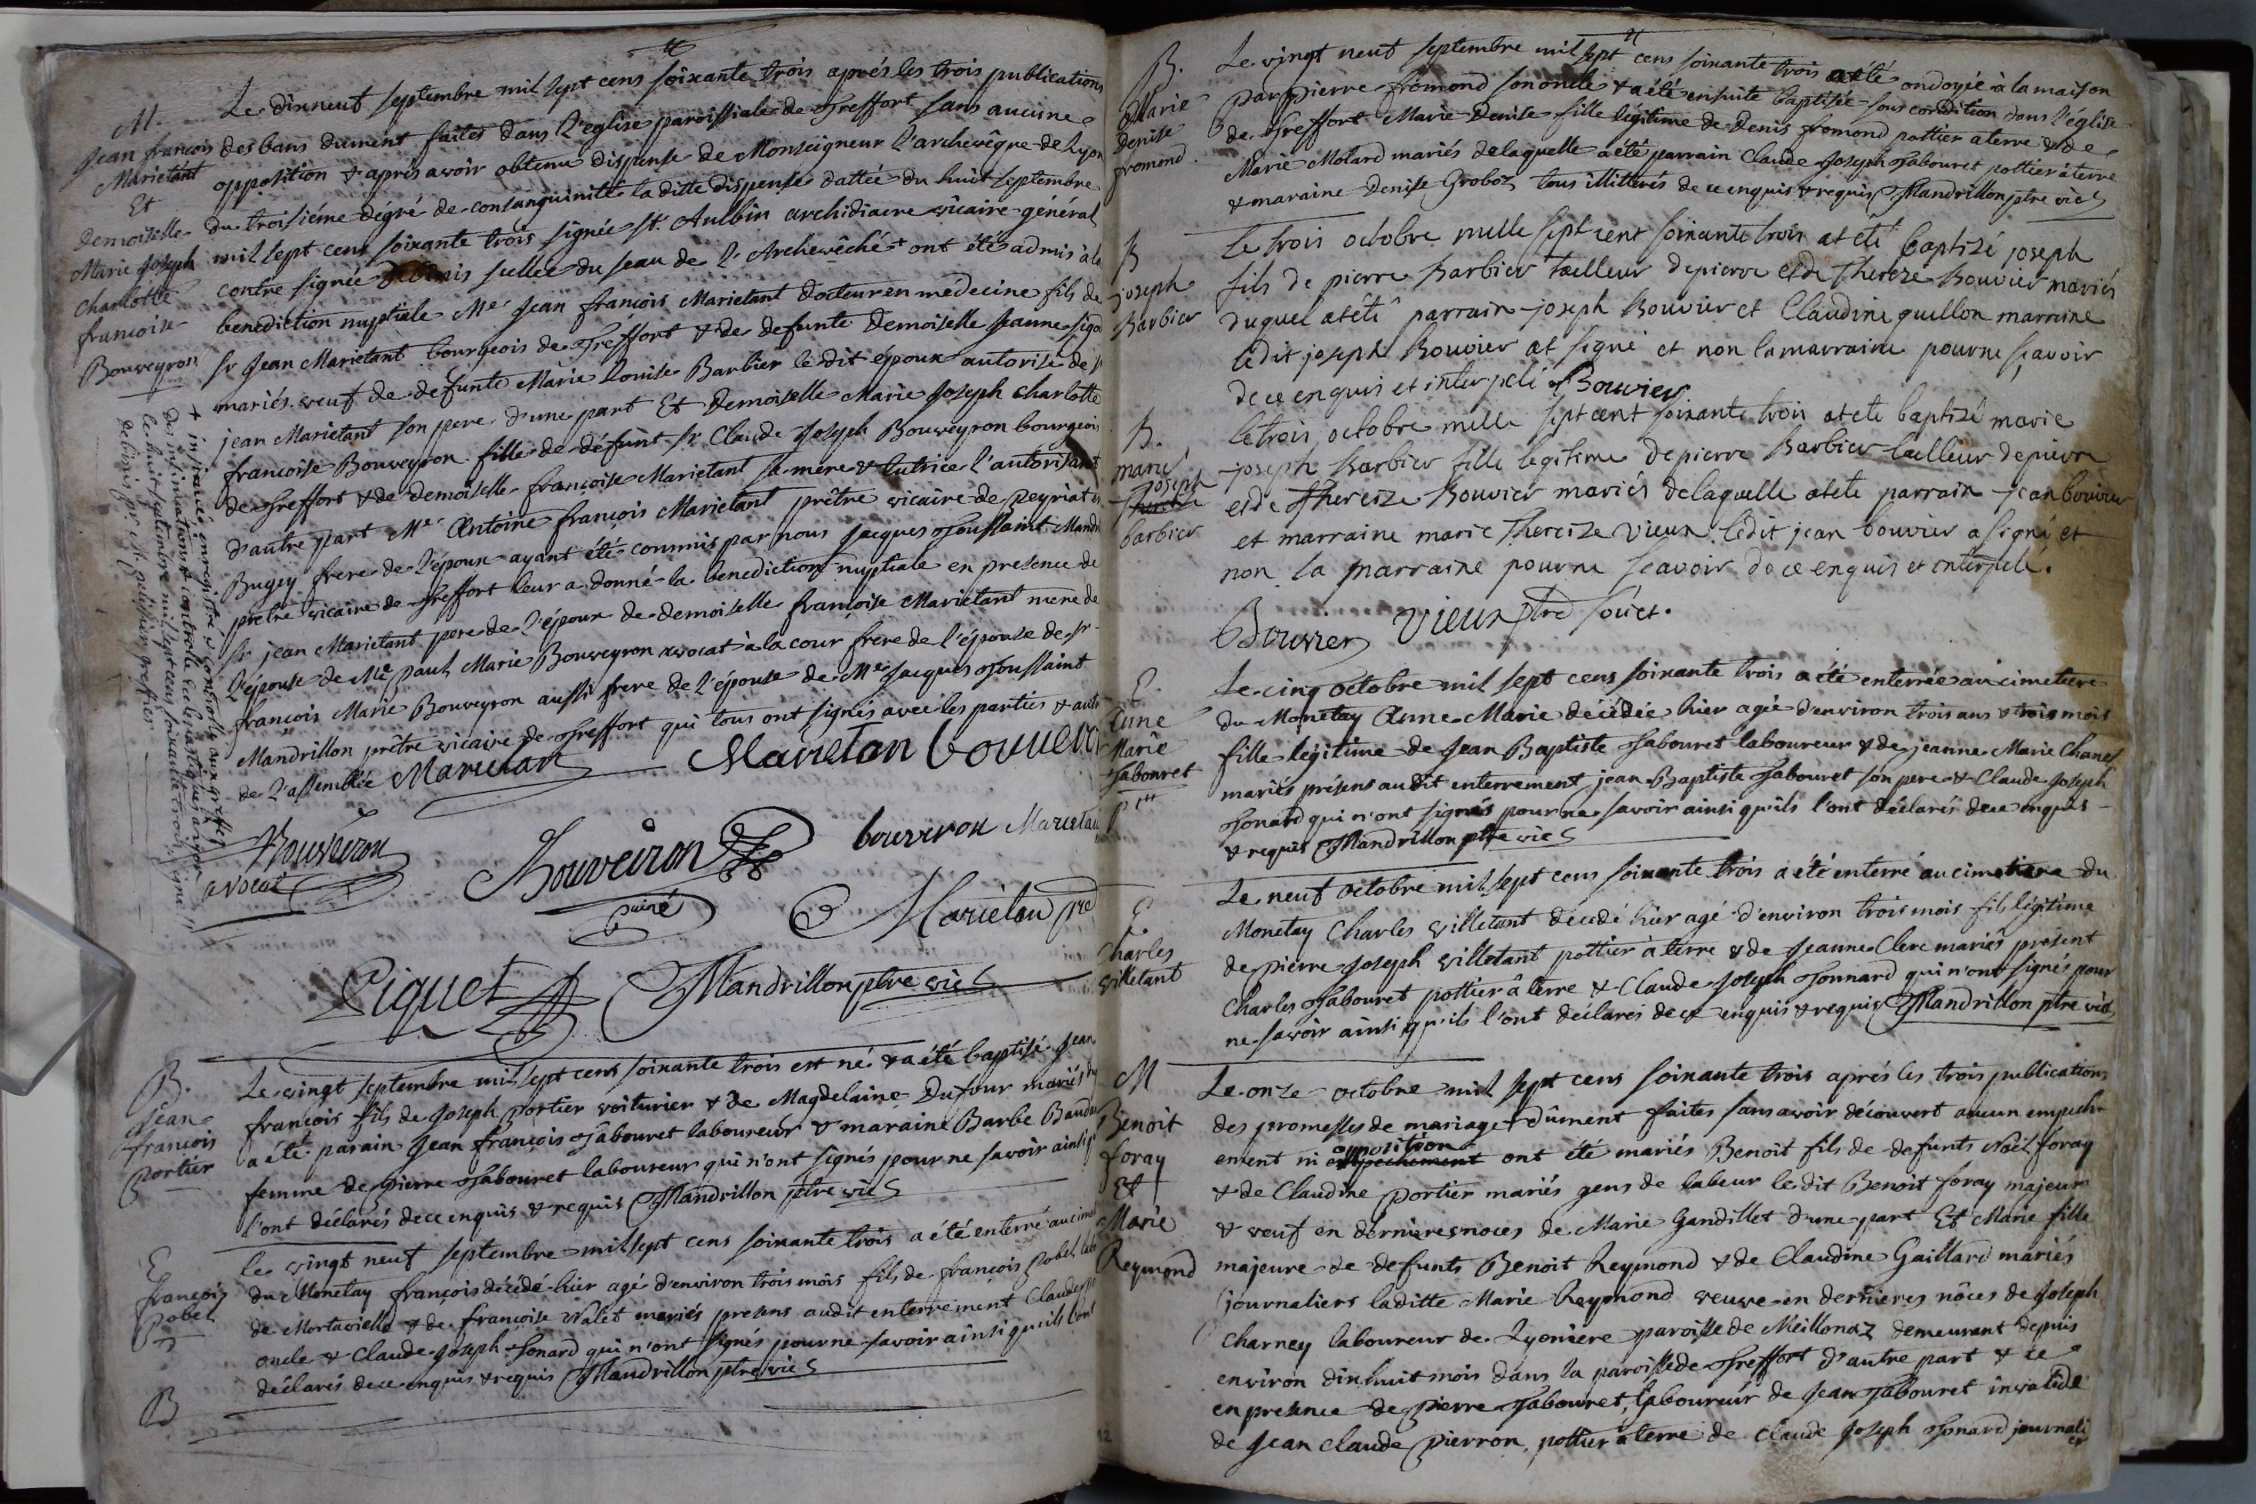 M.
Jean françois
Marietant
Et
demoiselle
Marie Joseph
Charlotte
francoise
Bouveyron
Le dixneuf septembre mil sept cens soixante trois aprés les trois publications
des bans dument faites dans l'eglise paroissiale de Treffort sans aucune
opposition & aprés avoir obtenu dispense de Monseigneur l'archevêque de Lyon
du troisiéme dégré de consanguinité la ditte dispense dattée du huit septembre
mil sept cens soixante trois signée st. Aulbin archidiacre vicaire général
contre signée scellée du seau de l'Archevêché + ont étés admis à la
benediction nuptiale Mr. Jean françois Marietant docteur en medecine fils de
Sr Jean Marietant bourgeois de Treffort & de defunte Demoiselle Jeanne
mariés veuf de defunte Marie Louise Barbier le dit époux autorisé de Sr
jean Marietant son pere d'une part Et Demoiselle Marie Joseph Charlotte
francoise Bouveyron fille de défunt Sr. Claude Joseph Bouveyron bourgeois
de Treffort & de demoiselle françoise Marietant sa mere & tutrice l'autorisant
d'autre part Mr. Antoine françois Marietant prêtre vicaire de Peyriat en
Bugey frere de l'époux ayant été commis par nous Jacques Toussaint Mandri
prêtre vicaire de Treffort leur a donné la benediction nuptiale en presence de
Sr jean Marietant pere de l'époux de demoiselle françoise Marietant mere de
l'épouse de Mr. Paul Marie Bouveyron avocat à la cour frere de l'épouse de Sr
françois Marie Bouveyron aussi frere de l'épouse de Mr. Jacques Toussaint
Mandrillon prêtre vicaire de Treffort qui tous ont signés avec les parties & autres
de l'assemblée Marietant Marietan bouveiron
+ insinuée enregistrée & controllée aux greffes
des insinuations & controlle ecclesiastique à Lyon
le huit septembre mil sept cens soixante trois signé
de Louis pr. M. greffier
Bouveiron
avocat
Bouveiron
puiné
bouveron Marietan
Marietan pre
Piquet Mandrillon ptre vic
B.
Jean
françois
Portier
Le vingt septembre mil sept cens soixante trois est né & a été baptisé Jean
françois fils de Joseph Portier voiturier & de Magdelaine Dufour mariés
a été parain Jean françois Tabouret laboureur & maraine Barbe
femme de Pierre Tabouret laboureur qui n'ont signés pour ne savoir ainsi qu
l'ont déclarés de ce enquis & requis Mandrillon ptre vic
E
françois
Pobel
Le vingt neuf septembre mil sept cens soixante trois a été enterré au cime
du Monetay françois décédé hier agé d'environ trois mois fils de françois Pobel
de Mortavielle & de françoise Nalet mariés presens audit enterrement Claude
oncle & Claude Joseph Tonard qui n'ont signés pour ne savoir ainsi qu'ils l'ont
déclarés de ce enquis & requis Mandrillon ptre vic
B
B.
Marie
Denise
fromond
Le vingt neuf septembre mil sept cens soixante trois a été ondoyée à la maison
par pierre fromond son oncle & a été ensuite baptisée sous condition dans l'église
de Treffort Marie Denise fille légitime de Denis fromond pottier a terre & de
Marie Molard mariés de laquelle a été parrain Claude Joseph Tabouret pottier à terre
& maraine Denise Groboz tous illitterés de ce enquis & requis Mandrillon ptre vic
B
joseph
Barbier
Le trois octobre mille sept cent soixante trois at eté baptizé joseph
fils de pierre Barbier tailleur de pierre et de Thereze Bouvier mariés
duquel at êtê parrain joseph Bouvier et Claudine quillon marraine
ledit joseph Bouvier at signé et non la marraine pour ne sçavoir
de ce enquis et interpelé Bouvier
B.
marie
joseph
barbier
le trois octobre mille sept cent soixante trois at eté baptizé marie
joseph Barbier fille legitime de pierre Barbier tailleur de pierre
et de Thereize Bouvier mariés de laquelle at eté parrain jean bouvier
et marraine marie Thereize Vieux ledit jean bouvier a signé et
non la marraine pour ne sçavoir de ce enquis et interpelé.
Bouvier Vieux ptre
E.
Anne
Marie
Tabouret
Le cinq octobre mil sept cens soixante trois a été enterrée au cimetiere
du Monetay Anne Marie décédée hier agée d'environ trois ans & trois mois
fille legitime de Jean Baptiste Tabouret laboureur & de jeanne Marie Chanel
mariés présens audit enterrement jean Baptiste Tabouret son pere & Claude Joseph
Tonard qui n'ont signés pour ne savoir ainsi qu'ils l'ont déclarés de ce enquis
& requis Mandrillon ptre vic
E.
Charles
Villetant
Le neuf octobre mil sept cens soixante trois a été enterré au cimetiere du
Monetay Charles Villetant décedé hier agé d'environ trois mois fils légitime
de Pierre Joseph Villetant pottier à terre & de Jeanne Clerc mariés présent
Charles Tabouret pottier â terre & Claude Joseph Tonnard qui n'ont signés pour
ne savoir ainsi qu'ils l'ont declarés de ce enquis & requis Mandrillon ptre vic
M
Benoit
foray
Et
Marie
Reymond
Le onze octobre mil sept cens soixante trois aprés les trois publications
des promesses de mariage dûment faites sans avoir découvert aucun empech-
ement ni opposition ont été mariés Benoit fils de defunts Noël foray
& de Claudine Portier mariés gens de labeur le dit Benoit foray majeur
& veuf en dernieres noces de Marie Gandillet d'une part Et Marie fille
majeure de defunts Benoit Reymond & de Claudine Gaillard mariés
journaliers laditte Marie Reymond veuve en dernieres nôces de Joseph
Charney laboureur de Lyoniere paroisse de Meillonaz demeurant depuis
environ dixhuit mois dans la paroisse de Treffort d'autre part & ce
en presence de Pierre Tabouret, laboureur de Jean Tabouret invalide
de Jean Claude Pierron pottier à terre de Claude Joseph Tonard journali
er
12